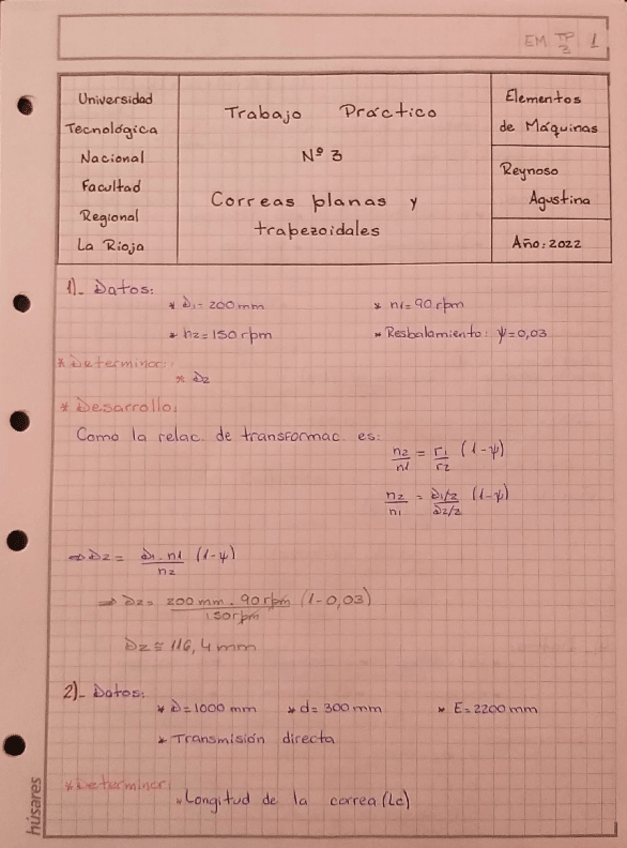 EM TP 3 1
Universidad Tecnológica Nacional Facultad Regional La Rioja
Trabajo Práctico
Nº 3
Correas planas y trapezoidales
Elementos de Máquinas
Reynoso Agustina
Año: 2022
1)_ Datos:
* D1 = 200 mm * n1 = 90 rpm
* n2 = 150 rpm * Resbalamiento: ψ = 0,03
* Determinar:
* D2
* Desarrollo:
Como la relac. de transformac. es:
n2/n1 = r1/r2 (1-ψ)
n2/n1 = D1/2 / D2/2 (1-ψ)
⇒ D2 = D1 . n1 / n2 (1-ψ)
⇒ D2 = 200 mm . 90 rpm / 150 rpm (1-0,03)
D2 ≅ 116,4 mm
2)_ Datos:
* D = 1000 mm * d = 300 mm * E = 2200 mm
* Transmisión directa
* Determinar:
* Longitud de la correa (Lc)
húsares